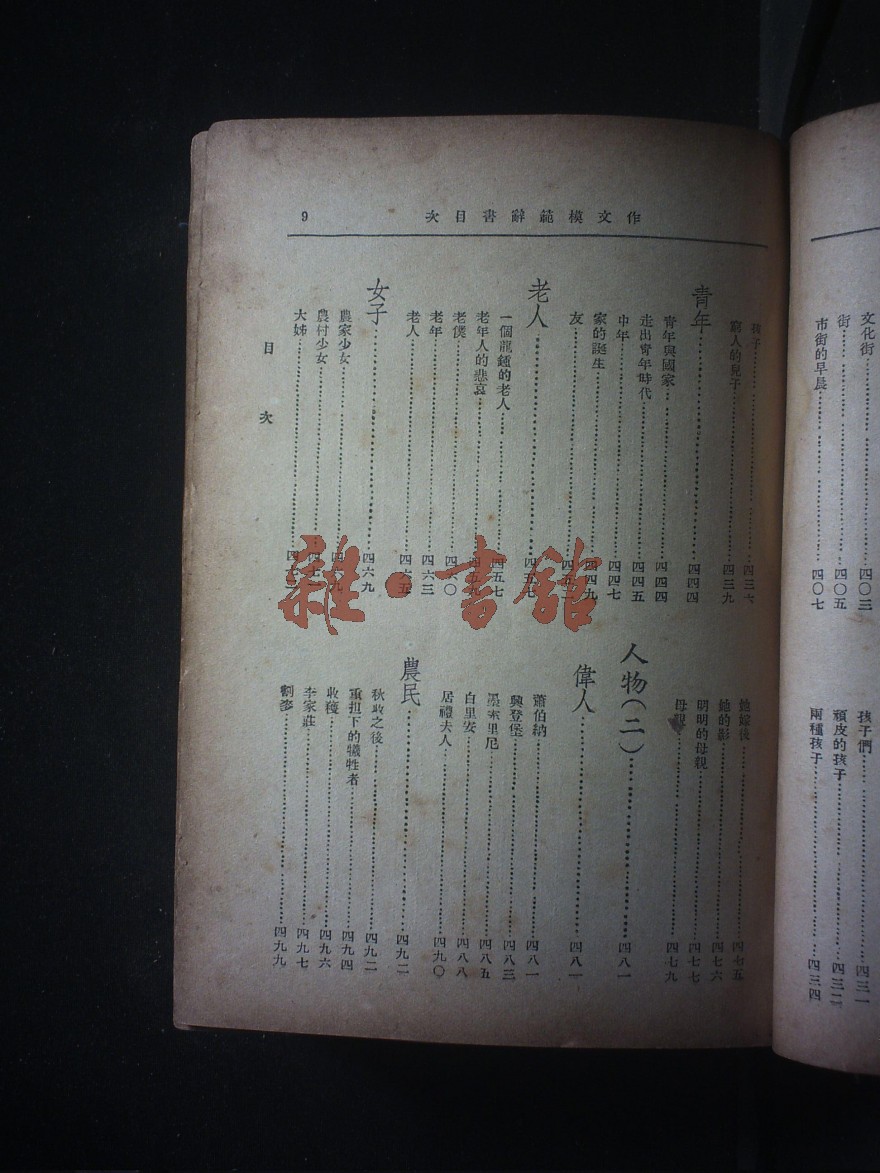 文化街 四〇三
街 四〇五
市街的早晨 四〇七
孩子們 四三一
頑皮的孩子 四三二
兩種孩子 四三四
作文模範辭書目次 9
孩子 四三六
窮人的兒子 四三九
青年 四四四
青年與國家 四四四
走出青年時代 四四五
中年 四四七
家的誕生 四四九
友
老人 四五七
一個龍鍾的老人 四五七
老年人的悲哀 四五九
老僕 四六〇
老年 四六三
老人 四六五
女子 四六九
農家少女 四六九
農村少女
大姊
她嫁後 四七五
她的影 四七六
明明的母親 四七七
母親 四七九
人物（二） 四八一
偉人 四八一
蕭伯納 四八一
興登堡 四八三
墨索里尼 四八五
白里安 四八八
居禮夫人 四九〇
農民 四九二
秋收之後 四九二
重担下的犧牲者 四九四
收穫 四九六
李家莊 四九七
割麥 四九九
目次
雜·書館